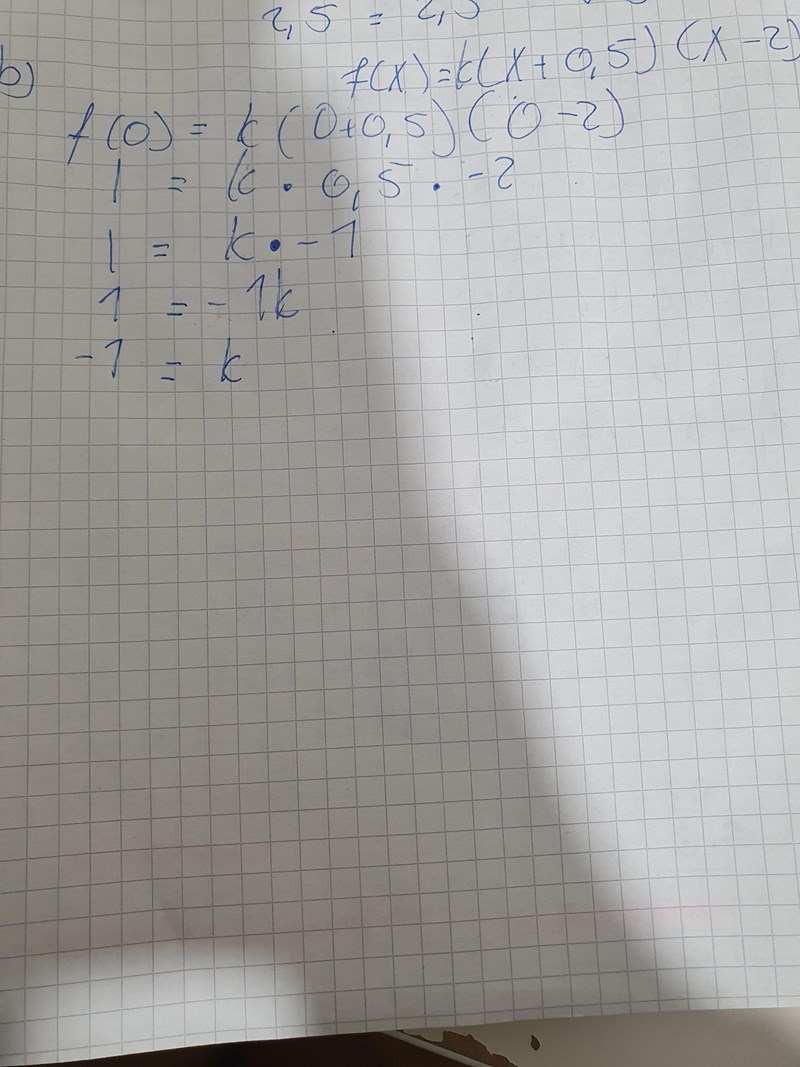 2,5 = 2,5
b) f(x)=k(x+0,5)(x-2)
f(0) = k(0+0,5)(0-2)
1 = k • 0,5 • -2
1 = k • -1
1 = -1k
-1 = k